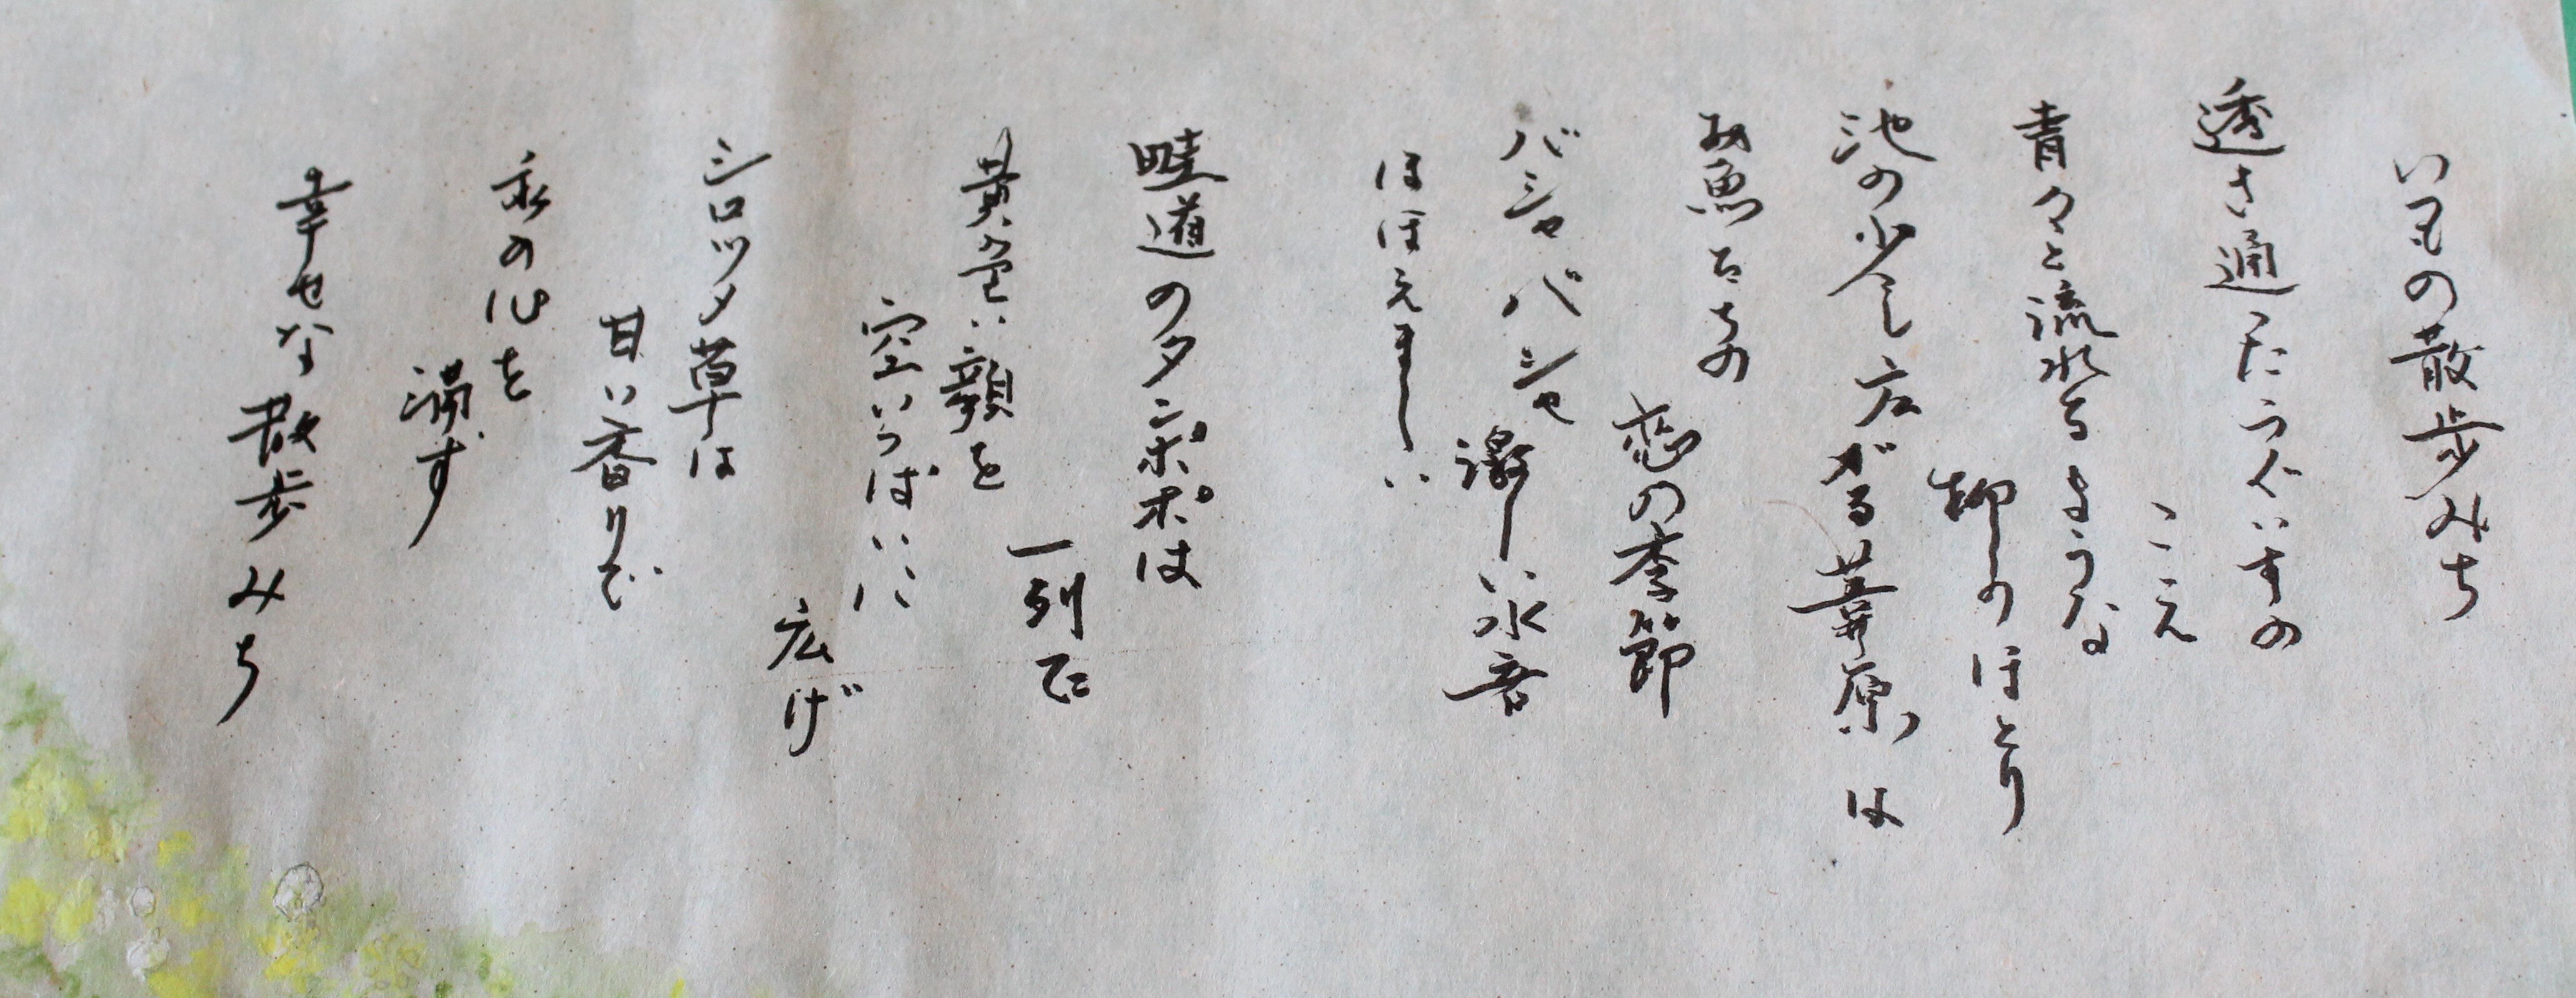 いつもの散歩みち
透き通ったうぐいすの
こえ
青々と流れるような
柳のほとり
池の少し広がる葦原は
お魚たちの
恋の季節
バシャバシャ
激しい水音
ほほえましい
畦道のタンポポは
一列に
黄色い顔を
空いっぱいに
広げ
シロツメ草は
甘い香りで
私の心を
満す
幸せな散歩みち